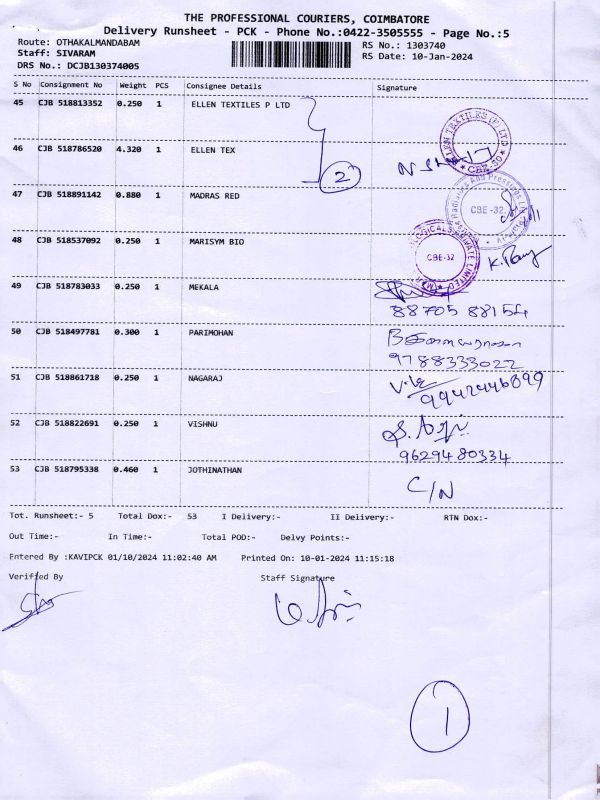 THE PROFESSIONAL COURIERS, COIMBATORE
Delivery Runsheet - PCK - Phone No.:0422-3505555 - Page No.:5
Route: OTHAKALMANDABAM
Staff: SIVARAM
DRS No.: DCJB130374005
RS No.: 1303740
RS Date: 10-Jan-2024
S No Consignment No Weight PCS Consignee Details Signature
45 CJB 518813352 0.250 1 ELLEN TEXTILES P LTD
46 CJB 518786520 4.320 1 ELLEN TEX
2
ELLEN TEXTILES (P) LTD
CBE-50
47 CJB 518891142 0.880 1 MADRAS RED
CBE-32
48 CJB 518537092 0.250 1 MARISYM BIO
PRIVATE LIMITED
CBE-32
49 CJB 518783033 0.250 1 MEKALA
88705 88154
50 CJB 518497781 0.300 1 PARIMOHAN
9788333022
51 CJB 518861718 0.250 1 NAGARAJ
9942446899
52 CJB 518822691 0.250 1 VISHNU
9629480334
53 CJB 518795338 0.460 1 JOTHINATHAN
C/N
Tot. Runsheet:- 5 Total Dox:- 53 I Delivery:- II Delivery:- RTN Dox:-
Out Time:- In Time:- Total POD:- Delvy Points:-
Entered By :KAVIPCK 01/10/2024 11:02:40 AM Printed On: 10-01-2024 11:15:18
Verified By Staff Signature
1